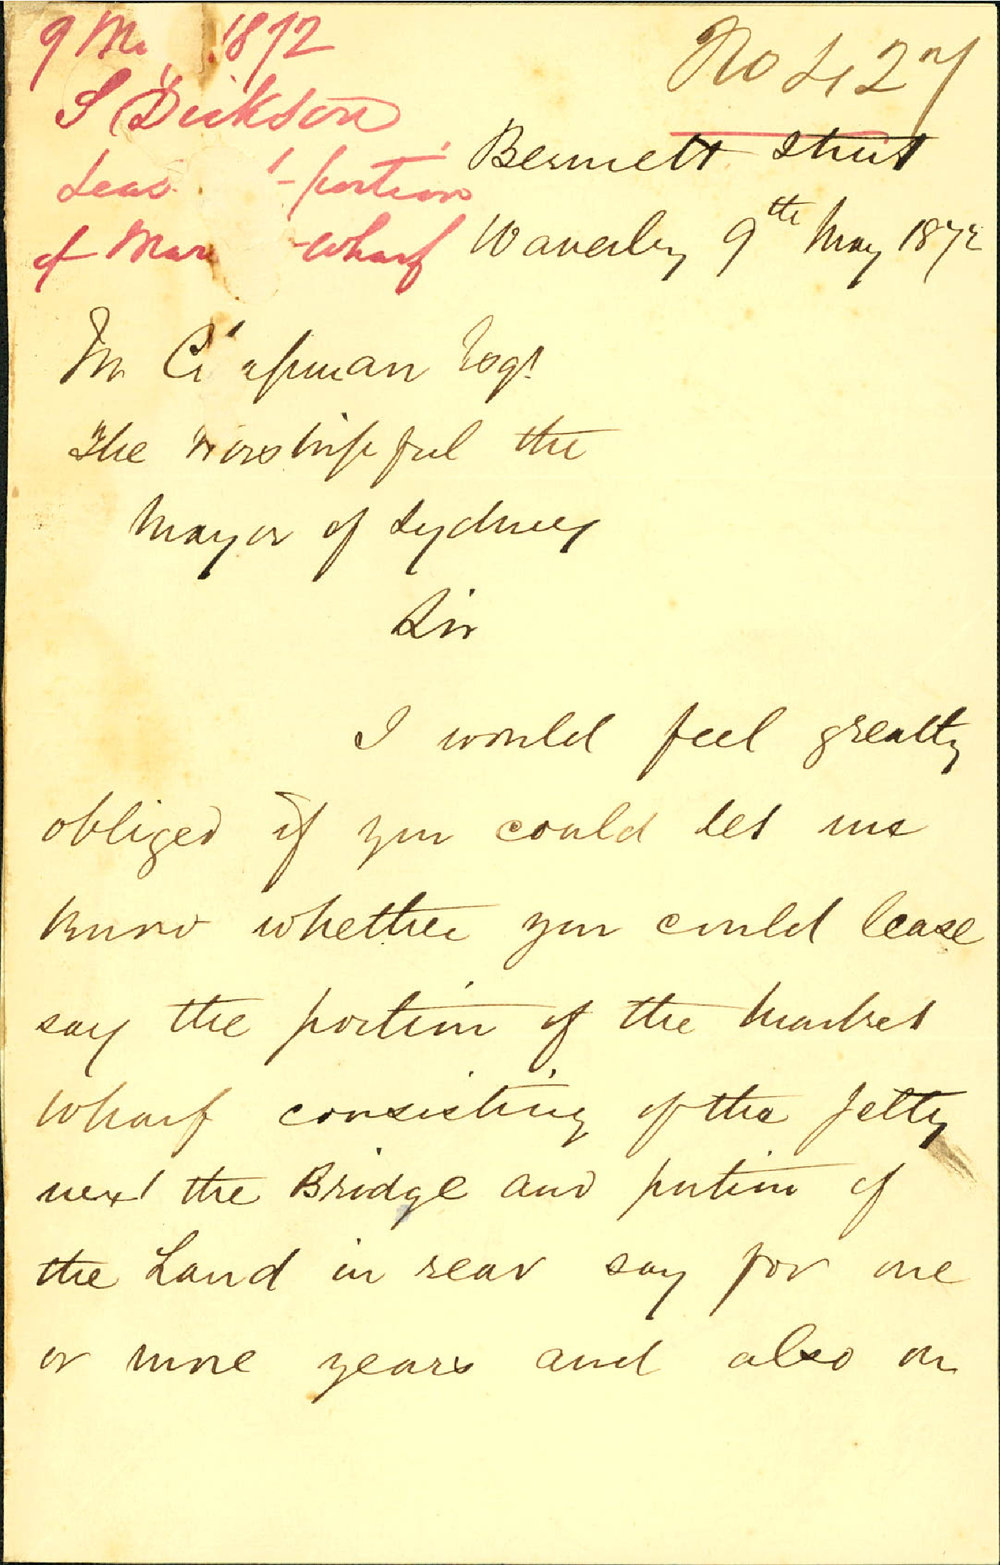 9 M 1872
S Dickson
Leas portion
of Mar wharf
No 427
Bennett Street
Waverley 9th May 1872
M. Chapman Esqr
The Worshipful the
Mayor of Sydney
Sir
I would feel greatly
obliged if you could let me
know whether you could lease
say the portion of the Market
Wharf consisting of the Jetty
next the Bridge and portion of
the Land in rear say for one
or more years and also on